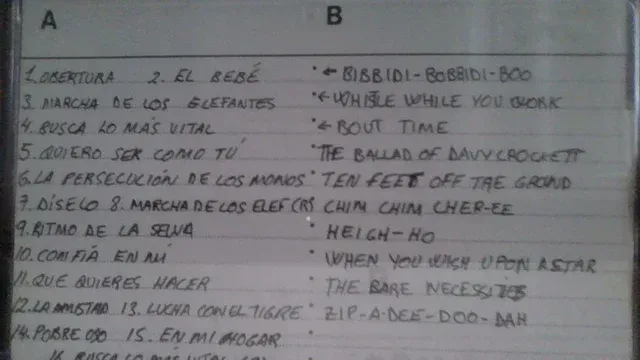 A
B
1. OBERTURA 2. EL BEBÉ
3. MARCHA DE LOS ELEFANTES
4. BUSCA LO MÁS VITAL
5. QUIERO SER COMO TÚ
6. LA PERSECUCIÓN DE LOS MONOS
7. DÍSELO 8. MARCHA DE LOS ELEF (R)
9. RITMO DE LA SELVA
10. CONFÍA EN MÍ
11. QUE QUIERES HACER
12. LA AMISTAD 13. LUCHA CON EL TIGRE
14. POBRE OSO 15. EN MI HOGAR
16. BUSCA LO MÁS VITAL
• ← BIBBIDI-BOBBIDI-BOO
• ← WHISTLE WHILE YOU WORK
• ← BOUT TIME
• THE BALLAD OF DAVY CROCKETT
• TEN FEET OFF THE GROUND
• CHIM CHIM CHER-EE
• HEIGH-HO
• WHEN YOU WISH UPON A STAR
• THE BARE NECESSITIES
• ZIP-A-DEE-DOO-DAH